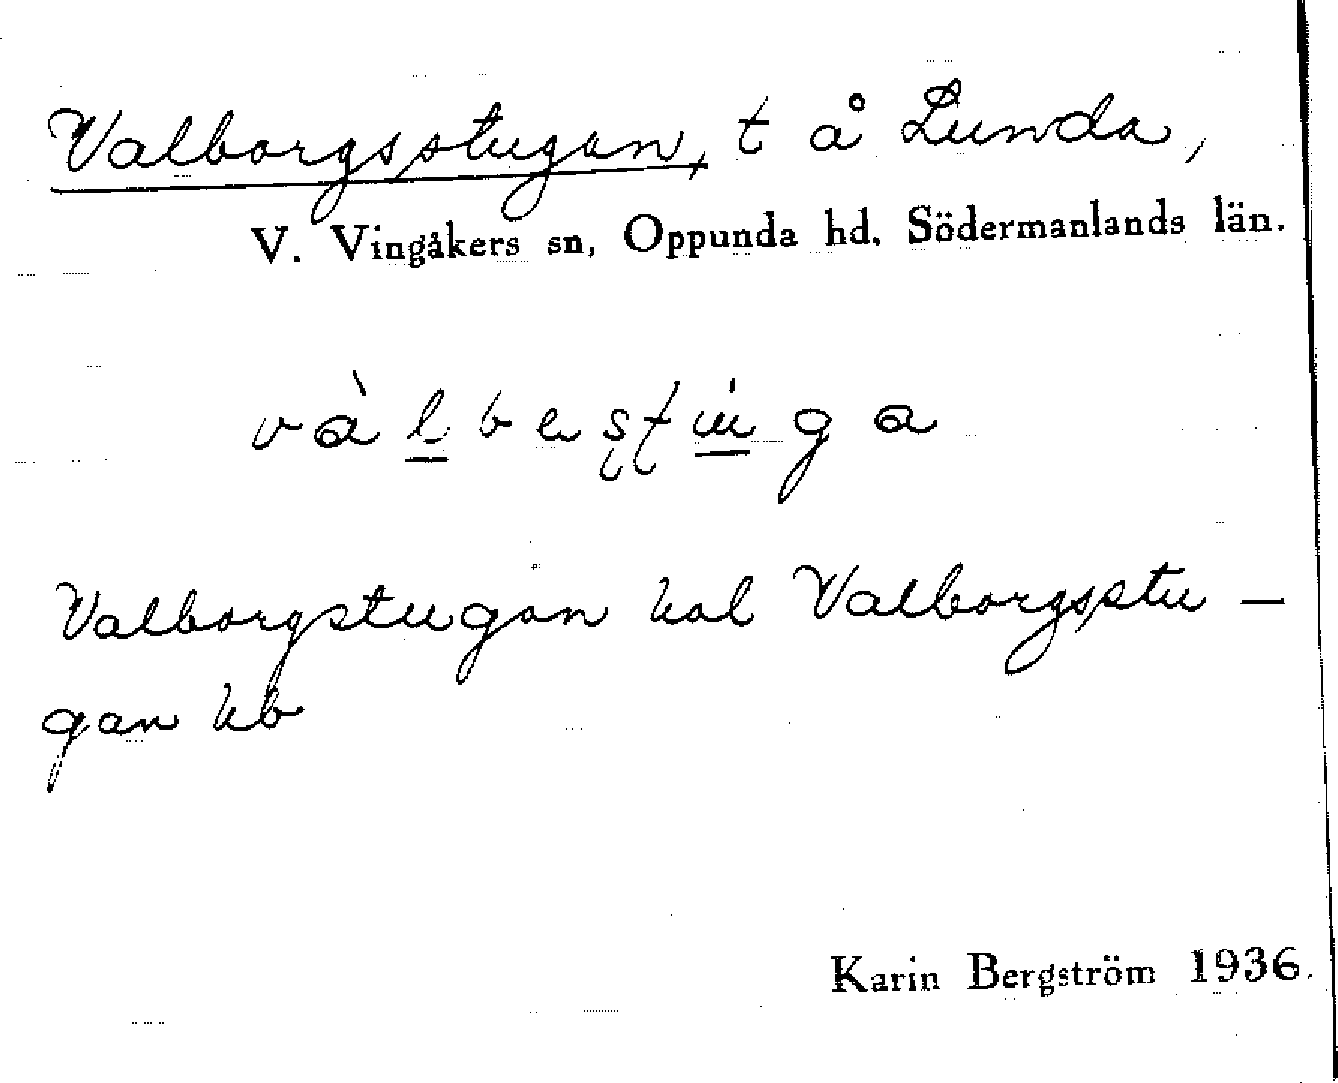 Valborgsstugan, t å Lunda,
V. Vingåkers sn, Oppunda hd, Södermanlands län.
Valborgstugan hal Valborgsstu–
gan hb
Karin Bergström 1936.